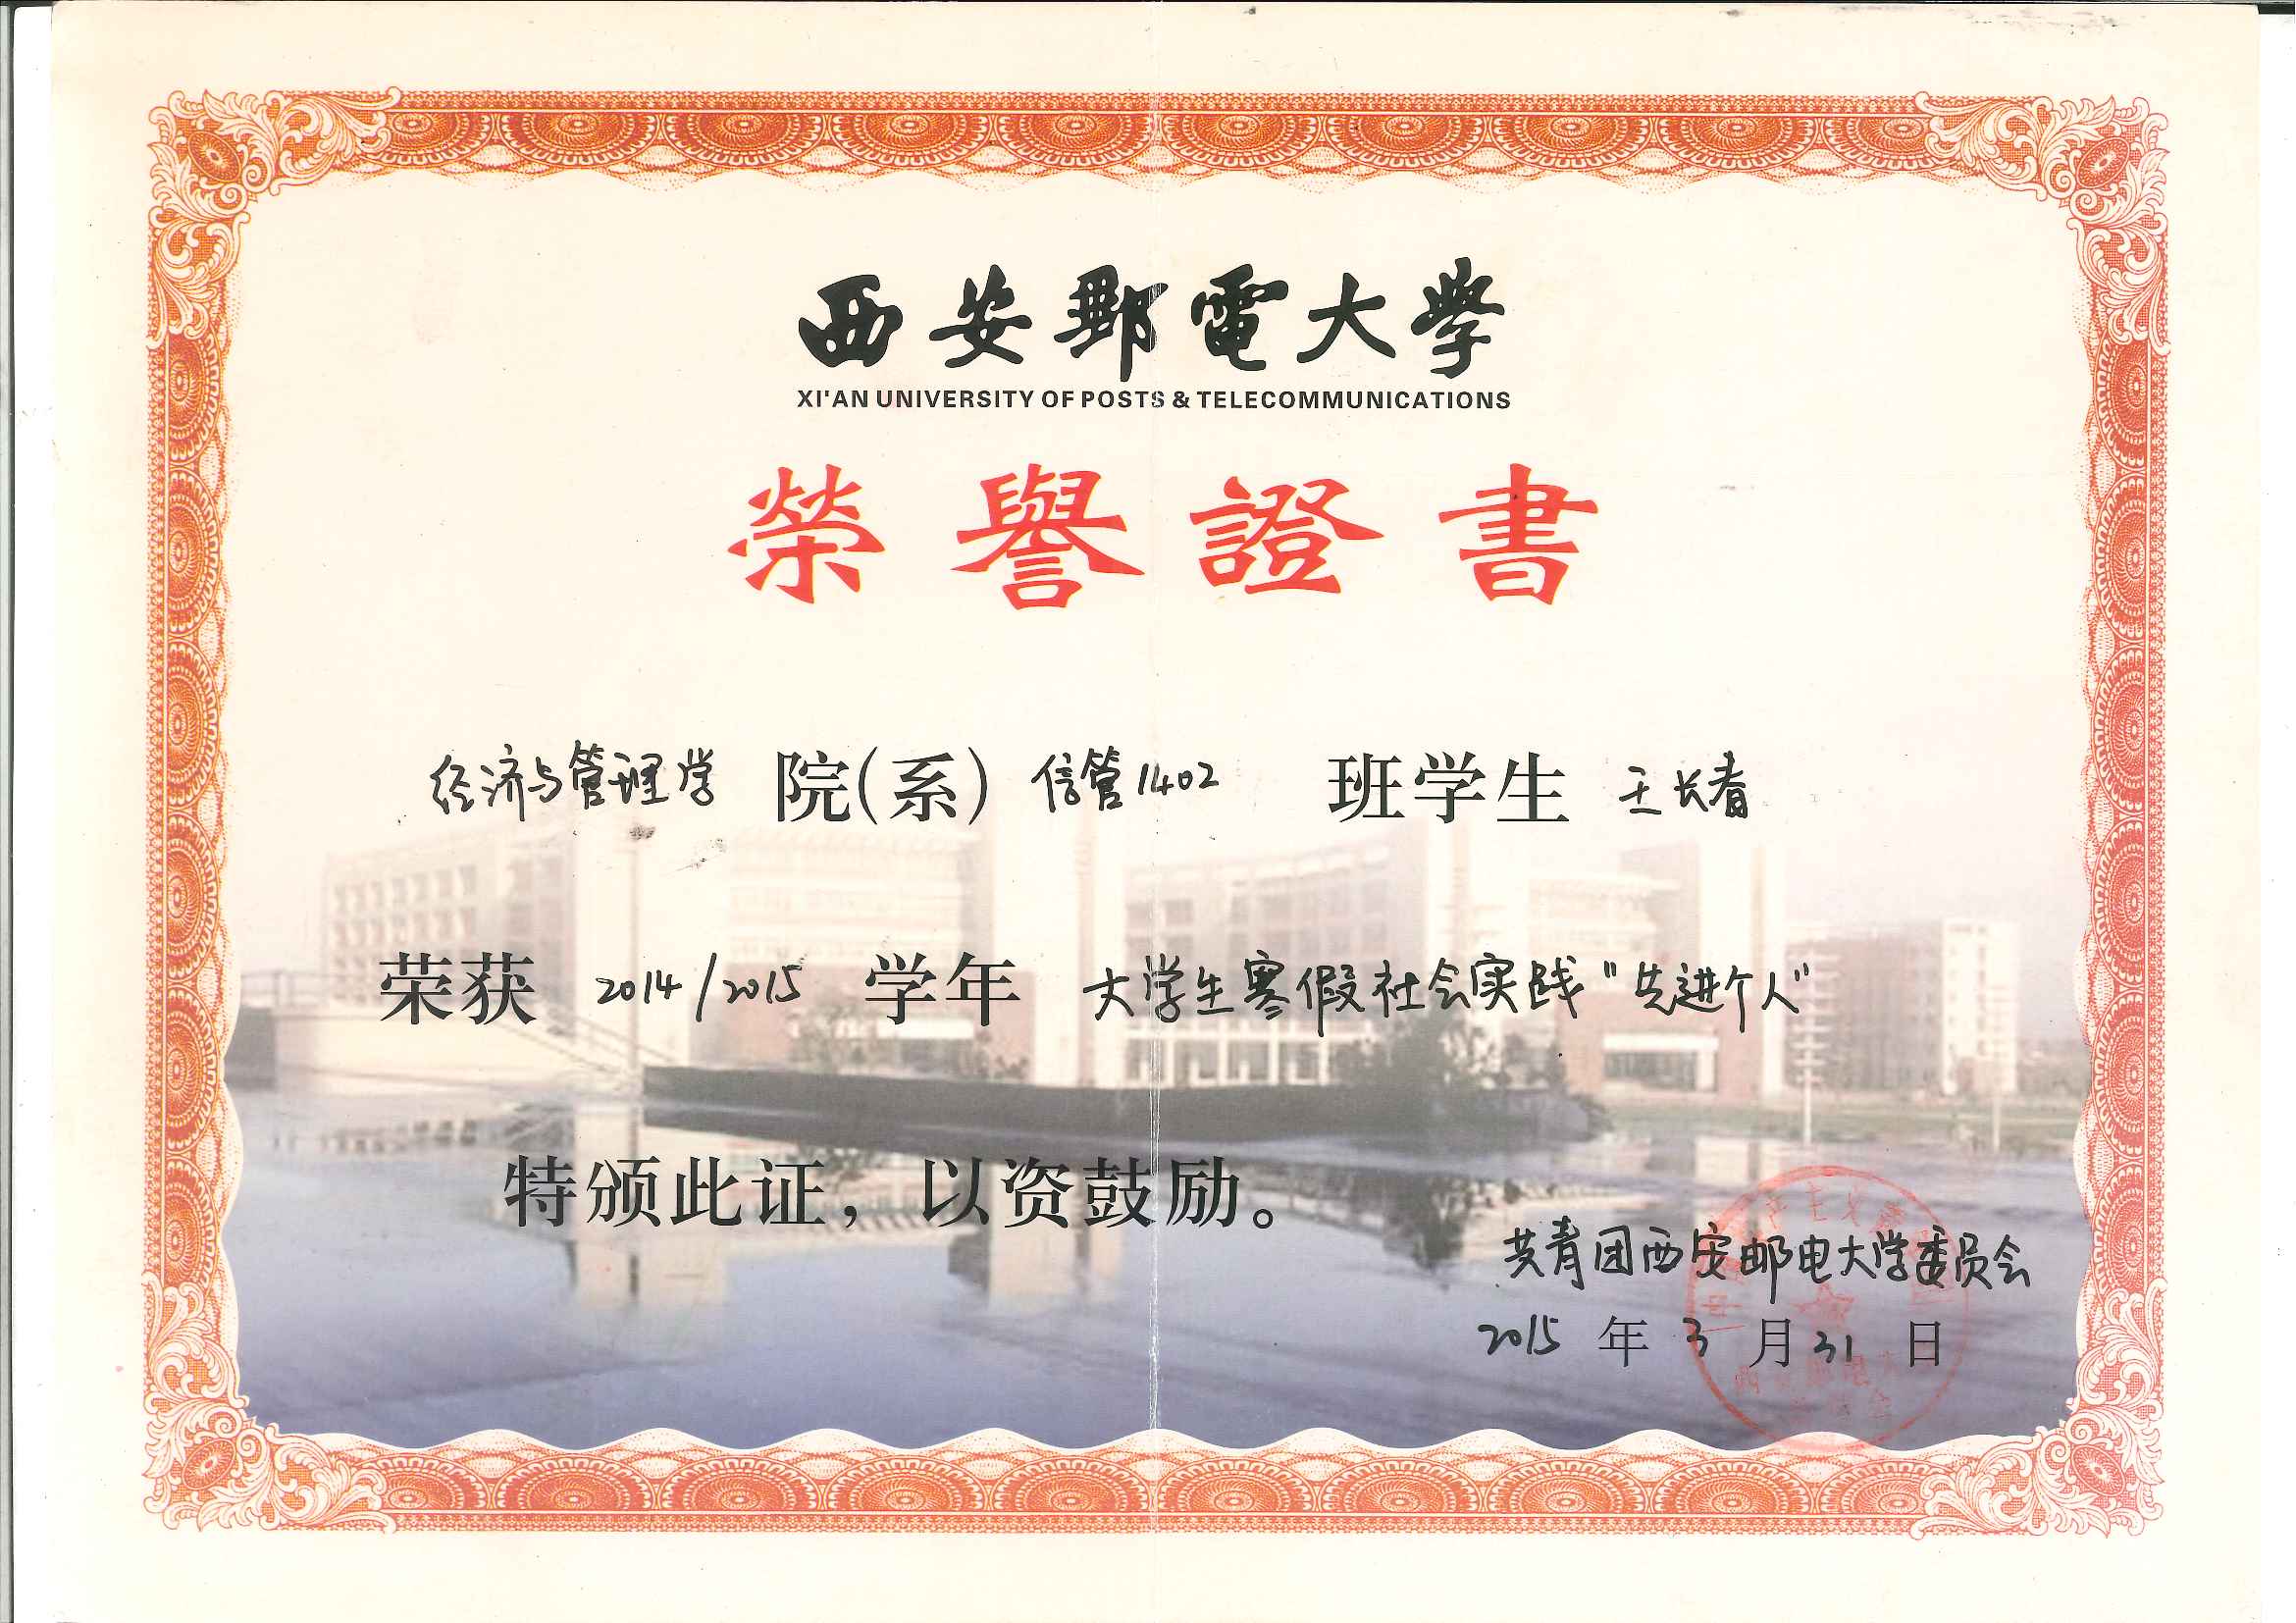 西安郵電大學
XI'AN UNIVERSITY OF POSTS & TELECOMMUNICATIONS
榮譽證書
经济与管理学 院(系) 信管1402 班学生 王长春
荣获 2014/2015 学年 大学生寒假社会实践“先进个人”
特颁此证，以资鼓励。
共青团西安邮电大学委员会
2015 年 3 月 31 日